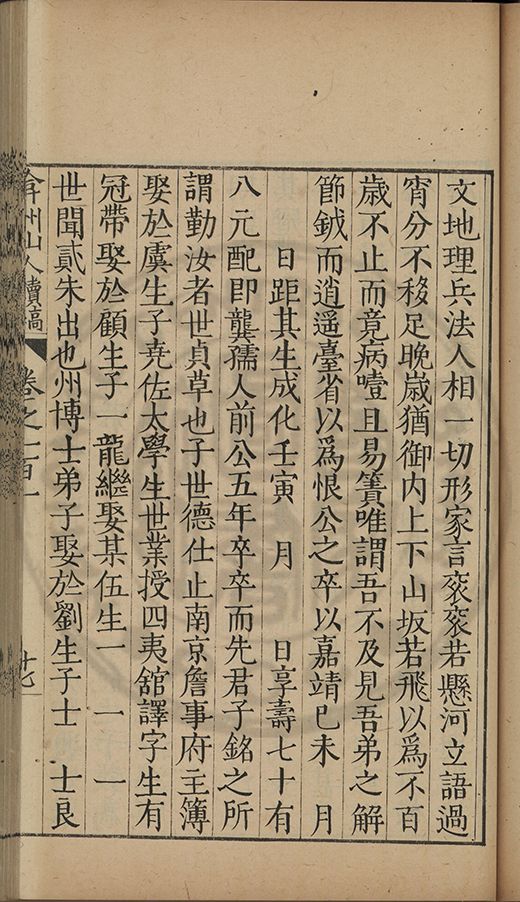 文地理兵法人相一切形家言袞袞若懸河立語過
宵分不移足晚歲猶御内上下山坂若飛以爲不百
歲不止而竟病噎且易簀唯謂吾不及見吾弟之解
節鉞而逍遥臺省以爲恨公之卒以嘉靖己未　月
　日距其生成化壬寅　月　　日享壽七十有
八元配即龔孺人前公五年卒卒而先君子銘之所
謂勤汝者世貞草也子世德仕止南京詹事府主簿
娶於虞生子堯佐太學生世業授四夷舘譯字生有
冠帶娶於顧生子一龍繼娶某伍生一　一　一
世聞貳朱出也州博士弟子娶於劉生子士　士良
弇州山人續稿　卷之一百一　十七